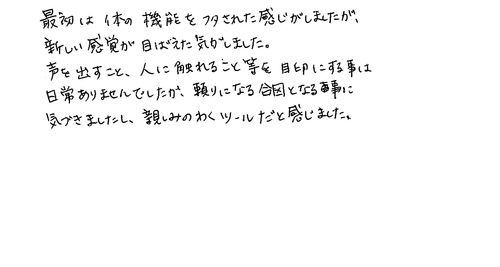 最初は体の機能をフタされた感じがしましたが、
新しい感覚が目ばえた気がしました。
声を出すこと、人に触れること等を目印にする事は
日常ありませんでしたが、頼りになる合図となる事に
気づきましたし、親しみのわくツールだと感じました。